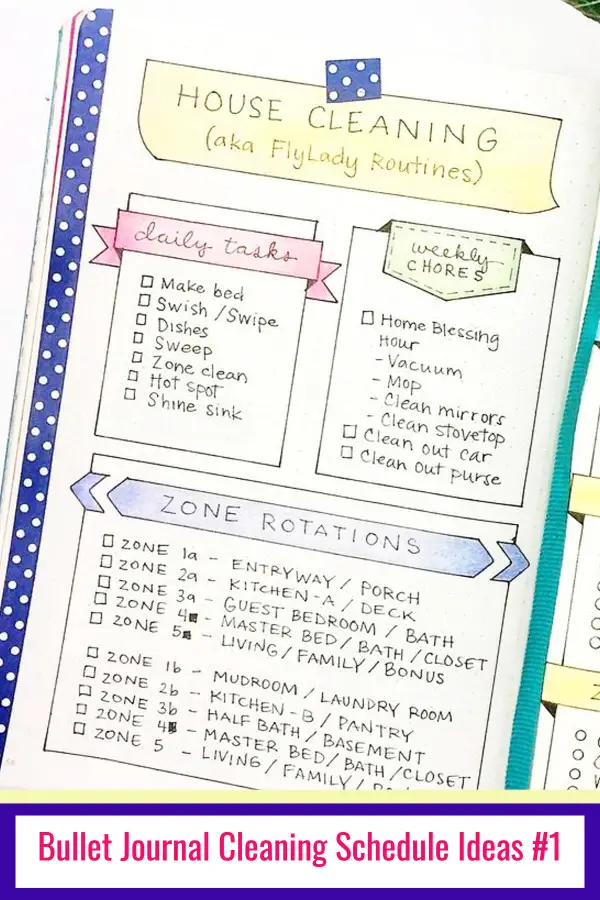 HOUSE CLEANING
(aka FlyLady Routines)
daily tasks
Make bed
Swish/Swipe
Dishes
Sweep
Zone clean
Hot spot
Shine sink
weekly
CHORES
Home Blessing
Hour
- Vacuum
- Mop
- Clean mirrors
- Clean stovetop
Clean out car
Clean out purse
ZONE ROTATIONS
ZONE 1a - ENTRYWAY / PORCH
ZONE 2a - KITCHEN-A / DECK
ZONE 3a - GUEST BEDROOM / BATH
ZONE 4 - MASTER BED/BATH/CLOSET
ZONE 5 - LIVING/FAMILY/BONUS
ZONE 1b - MUDROOM / LAUNDRY ROOM
ZONE 2b - KITCHEN-B / PANTRY
ZONE 3b - HALF BATH / BASEMENT
ZONE 4 - MASTER BED/BATH/CLOSET
ZONE 5 - LIVING/FAMILY/
Bullet Journal Cleaning Schedule Ideas #1